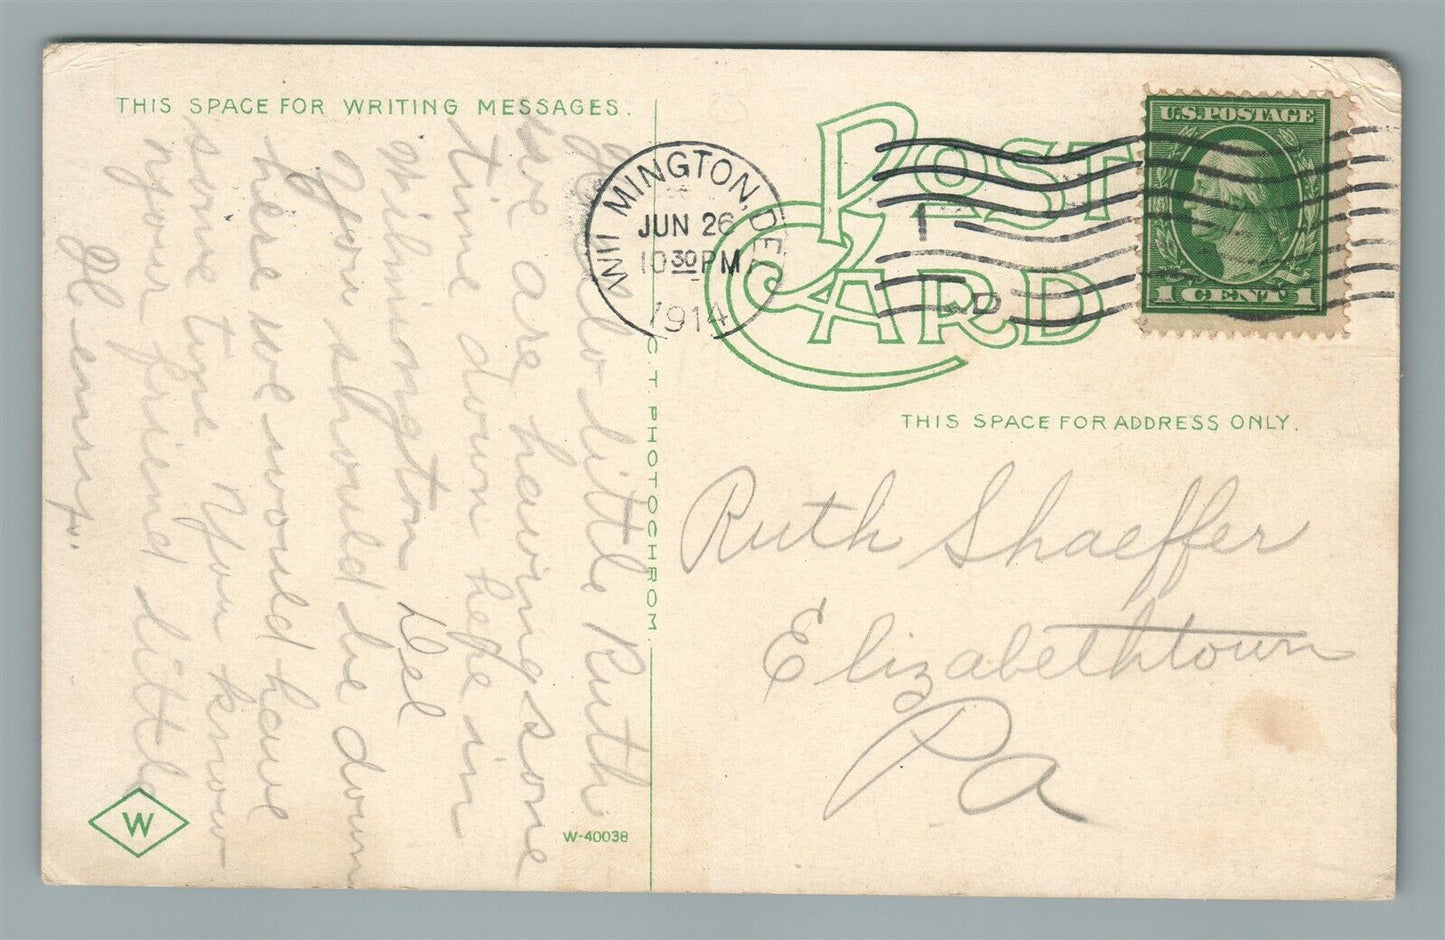 THIS SPACE FOR WRITING MESSAGES.
Hello little Ruth
we are having some
time down here in
Wilmington Del
You should be down
here we would have
some time You know
your friend little
Henry.
W
W-40038
C T PHOTOCHROM
POST CARD
WILMINGTON, DEL
JUN 26
10 30 PM
1914
1
D
U.S. POSTAGE
1 CENT 1
THIS SPACE FOR ADDRESS ONLY.
Ruth Shaeffer
Elizabethtown
Pa